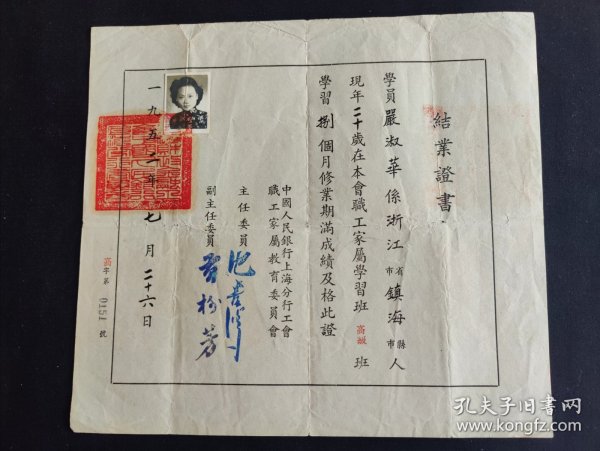 結業證書
學員嚴淑華係浙江省市鎮海縣市人
現年二十歲在本會職工家屬學習班高級班
學習捌個月修業期滿成績及格此證
中國人民銀行上海分行工會
職工家屬教育委員會
主任委員
副主任委員
一九五二年七月二十六日
高字第0151號
孔夫子旧书网
www.kongfz.com